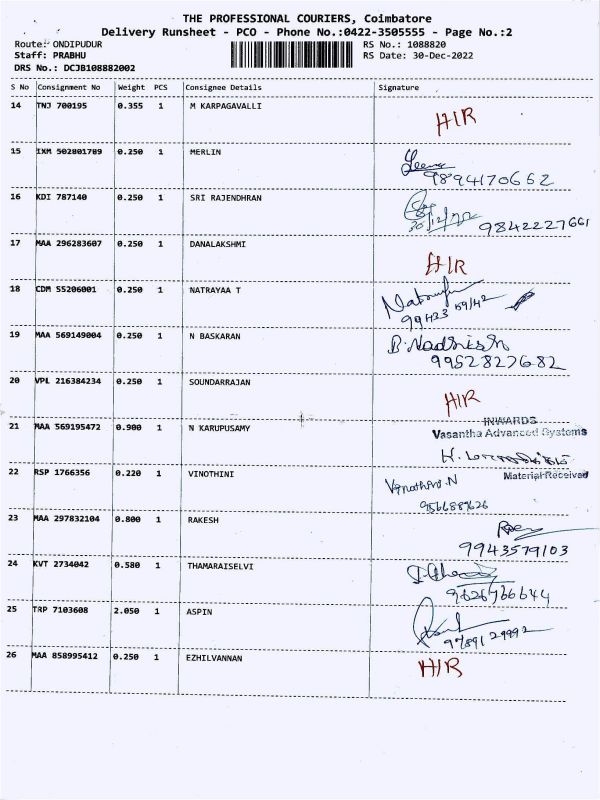 THE PROFESSIONAL COURIERS, Coimbatore
Delivery Runsheet - PCO - Phone No.:0422-3505555 - Page No.:2
Route: ONDIPUDUR RS No.: 1088820
Staff: PRABHU RS Date: 30-Dec-2022
DRS No.: DCJB108882002
S No Consignment No Weight PCS Consignee Details Signature
14 TNJ 700195 0.355 1 M KARPAGAVALLI
HIR
15 IXM 502801789 0.250 1 MERLIN
Leena
9894170652
16 KDI 787140 0.250 1 SRI RAJENDHRAN
30/12/22 9842227661
17 MAA 296283607 0.250 1 DANALAKSHMI
HIR
18 CDM 55206001 0.250 1 NATRAYAA T
99423 59142
19 MAA 569149004 0.250 1 N BASKARAN
9952827682
20 VPL 216384234 0.250 1 SOUNDARRAJAN
HIR
21 MAA 569195472 0.900 1 N KARUPUSAMY
INWARDS
Vasantha Advanced Systems
Material Received
22 RSP 1766356 0.220 1 VINOTHINI
Vinothini.N
23 MAA 297832104 0.800 1 RAKESH
9943579103
24 KVT 2734042 0.580 1 THAMARAISELVI
9626766644
25 TRP 7103608 2.050 1 ASPIN
9789129992
26 MAA 858995412 0.250 1 EZHILVANNAN
HIR